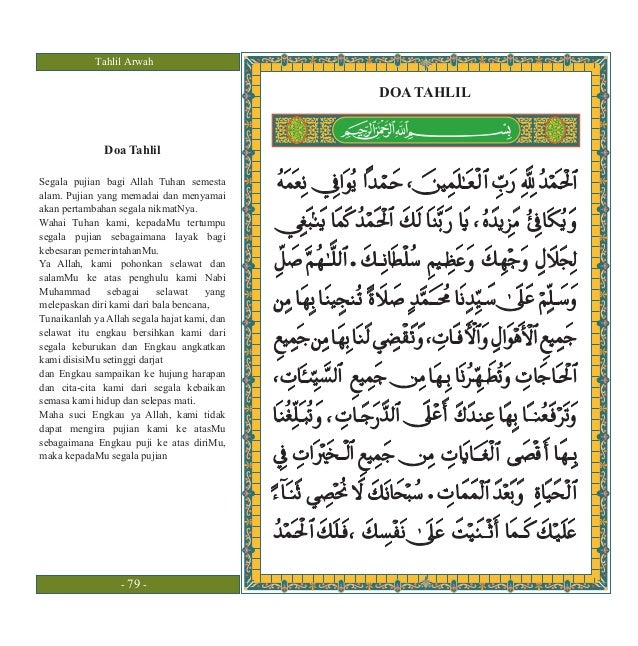 Tahlil Arwah
Doa Tahlil
Segala pujian bagi Allah Tuhan semesta
alam. Pujian yang memadai dan menyamai
akan pertambahan segala nikmatNya.
Wahai Tuhan kami, kepadaMu tertumpu
segala pujian sebagaimana layak bagi
kebesaran pemerintahanMu.
Ya Allah, kami pohonkan selawat dan
salamMu ke atas penghulu kami Nabi
Muhammad sebagai selawat yang
melepaskan diri kami dari bala bencana,
Tunaikanlah ya Allah segala hajat kami, dan
selawat itu engkau bersihkan kami dari
segala keburukan dan Engkau angkatkan
kami disisiMu setinggi darjat
dan Engkau sampaikan ke hujung harapan
dan cita-cita kami dari segala kebaikan
semasa kami hidup dan selepas mati.
Maha suci Engkau ya Allah, kami tidak
dapat mengira pujian kami ke atasMu
sebagaimana Engkau puji ke atas diriMu,
maka kepadaMu segala pujian
- 79 -
DOA TAHLIL
بِسْمِ اللَّهِ الرَّحْمَٰنِ الرَّحِيمِ
ٱلْحَمْدُ لِلَّهِ رَبِّ ٱلْعَـٰلَمِينَ، حَمْدًا يُوَافِي نِعَمَهُ
وَيُكَافِئُ مَزِيدَهُ، يَا رَبَّنَا لَكَ ٱلْحَمْدُ كَمَا يَنۢبَغِي
لِجَلَالِ وَجْهِكَ وَعَظِيمِ سُلْطَانِكَ. ٱللَّهُمَّ صَلِّ
وَسَلِّمْ عَلَىٰ سَيِّدِنَا مُحَمَّدٍ صَلَاةً تُنجِينَا بِهَا مِن
جَمِيعِ ٱلْأَهْوَالِ وَٱلْأَفَاتِ، وَتَقْضِي لَنَا بِهَا مِن جَمِيعِ
ٱلْحَاجَاتِ وَتُطَهِّرُنَا بِهَا مِن جَمِيعِ ٱلسَّيِّئَاتِ،
وَتَرْفَعُنَا بِهَا عِندَكَ أَعْلَى ٱلدَّرَجَاتِ، وَتُبَلِّغُنَا
بِهَا أَقْصَى ٱلْغَايَاتِ مِن جَمِيعِ ٱلْخَيْرَاتِ فِي
ٱلْحَيَاةِ وَبَعْدَ ٱلْمَمَاتِ. سُبْحَانَكَ لَا نُحْصِي ثَنَآءً
عَلَيْكَ كَمَا أَثْنَيْتَ عَلَىٰ نَفْسِكَ، فَلَكَ ٱلْحَمْدُ